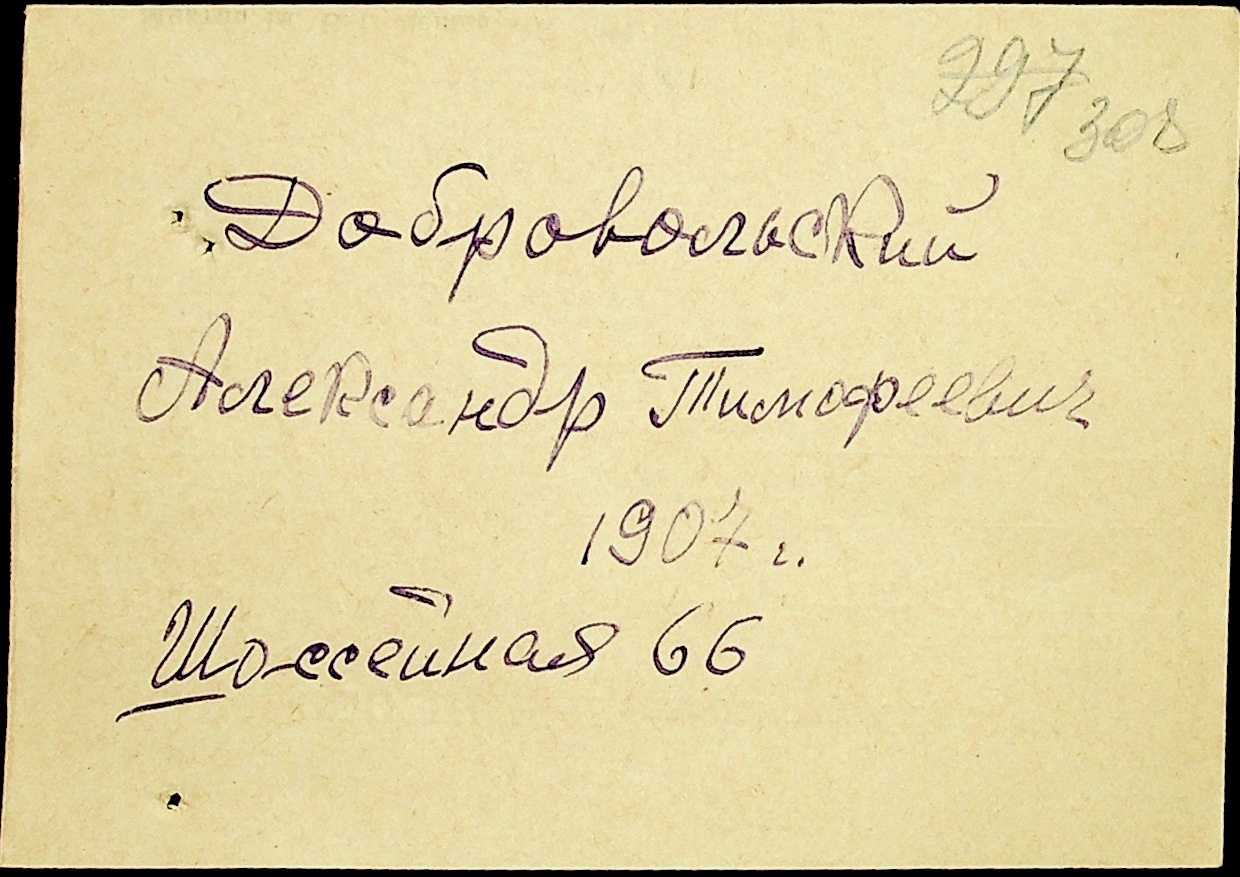 297
308
Добровольский
Александр Тимофеевич
1907 г.
Шоссейная 66